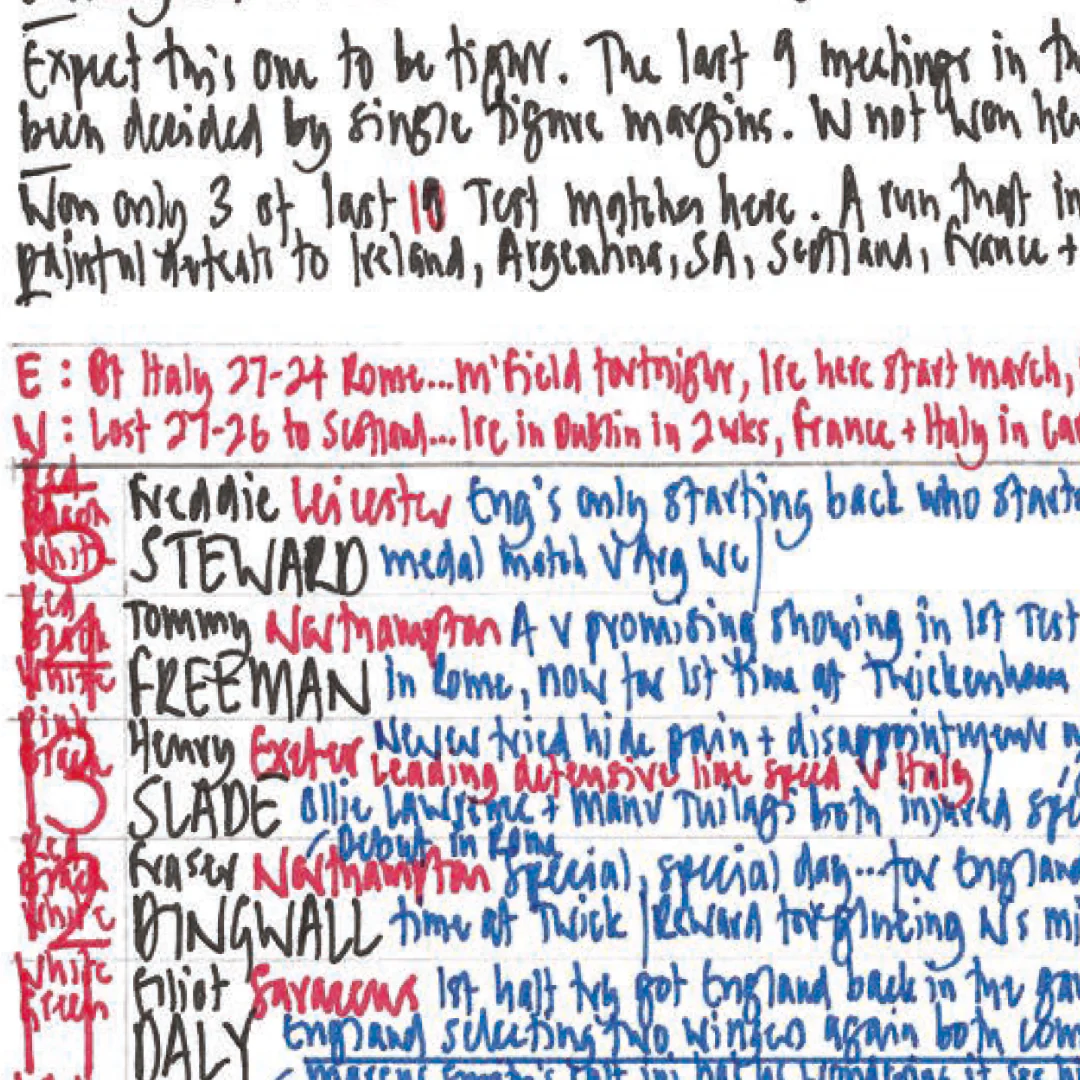 Expect this one to be tight. The last 9 meetings in th
been decided by single figure margins. W not won he
Won only 3 of last 10 Test matches here. A run that in
painful defeats to Ireland, Argentina, SA, Scotland, France +
E : Bt Italy 27-24 Rome...m'field fortnight, Ire here start march,
W : Lost 27-26 to Scotland...Ire in Dublin in 2wks, France + Italy in Car
Red
Bacon
White
15
Freddie Leicester Eng's only starting back who starts
STEWARD medal match v Arg WC
Red
White
14
Tommy Northampton A v promising showing in 1st Test
FREEMAN in Rome, now for 1st time at Twickenham
Pink
Green
13
Henry Exeter Never tried hide pain + disappointment
Leading defensive line speed v Italy
SLADE Ollie Lawrence + Manu Tuilagi both injured
Debut in Rome
Red
White
12
Fraser Northampton Special, special day...for England
DINGWALL time at Twick Reward for glueing N's mi
White
Green
11
Elliot Saracens 1st half try got England back in the ga
DALY England selecting two wingers again both com